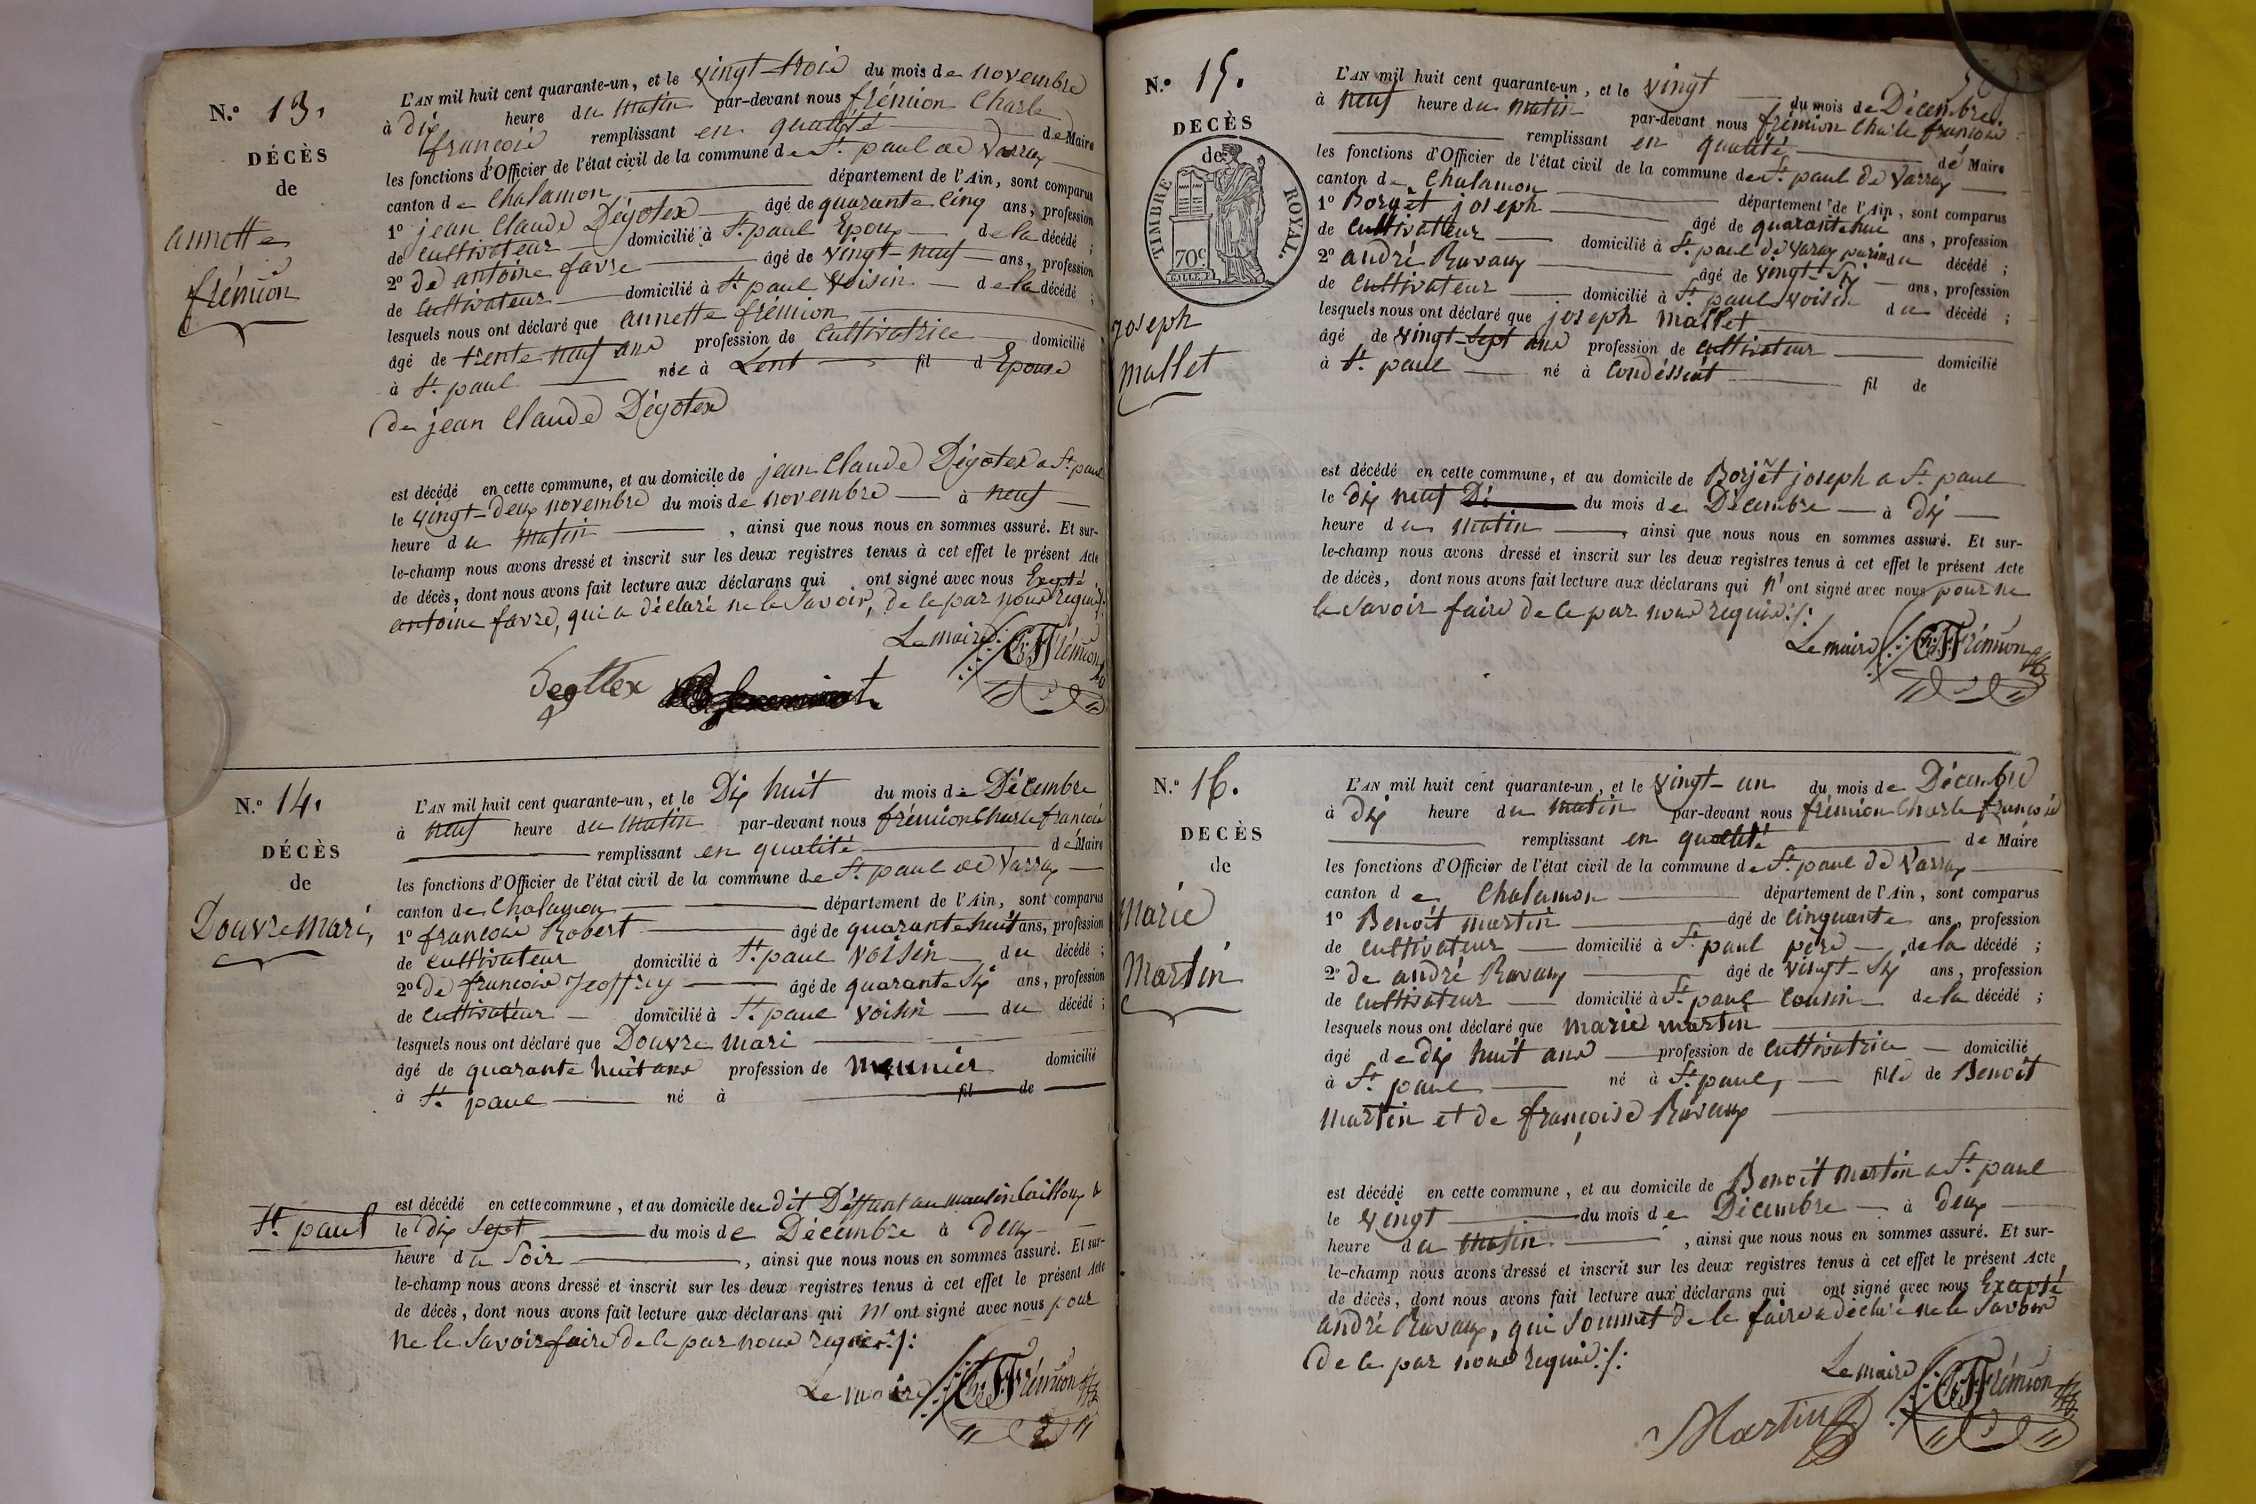 N.º 13.
DÉCÈS
de
annette
frémion
L'AN mil huit cent quarante-un, et le vingt-trois du mois de novembre
à dix heure du matin par-devant nous frémion Charle
françois remplissant en qualité de Maire
les fonctions d'Officier de l'état civil de la commune de St. paul de Varax
canton de Chalamon département de l'Ain, sont comparus
1º jean Claude Dégotex âgé de quarante cinq ans, profession
de cultivateur domicilié à St. paul Epoux de la décédé ;
2º de antoine favre âgé de vingt-neuf ans, profession
de cultivateur domicilié à St. paul voisin de la décédé ;
lesquels nous ont déclaré que annette frémion
âgé de trente neuf ans profession de cultivatrice domicilié
à St. paul née à Lent fil d Epouse
de jean Claude Dégotex
est décédé en cette commune, et au domicile de jean Claude Dégotex a St. paul
le vingt-deux novembre du mois de novembre à neuf
heure du matin , ainsi que nous nous en sommes assuré. Et sur-
le-champ nous avons dressé et inscrit sur les deux registres tenus à cet effet le présent Acte
de décès, dont nous avons fait lecture aux déclarans qui ont signé avec nous Exepté
antoine favre, qui a déclaré ne le savoir, de ce par nous requis ./.
Le maire Ch. F. Frémion
Degottex
N.º 14.
DÉCÈS
de
Douvre mari,
L'AN mil huit cent quarante-un, et le Dix huit du mois de Décembre
à neuf heure du matin par-devant nous frémion Charle françois
remplissant en qualité de Maire
les fonctions d'Officier de l'état civil de la commune de St. paul de Varax
canton de Chalamon département de l'Ain, sont comparus
1º françois Robert âgé de quarante huit ans, profession
de cultivateur domicilié à St. paul voisin du décédé ;
2º de françois Jeoffray âgé de quarante Six ans, profession
de cultivateur domicilié à St. paul voisin du décédé ;
lesquels nous ont déclaré que Douvre mari
âgé de quarante huit ans profession de meunier domicilié
à St. paul né à fil de
est décédé en cette commune, et au domicile du dit Déffunt au moulin Cailloux a
St. paul le dix sept du mois de Décembre à deux
heure du Soir , ainsi que nous nous en sommes assuré. Et sur-
le-champ nous avons dressé et inscrit sur les deux registres tenus à cet effet le présent Acte
de décès, dont nous avons fait lecture aux déclarans qui n' ont signé avec nous pour
ne le savoir faire de ce par nous requis ./.
Le maire Ch. F. Frémion
N.º 15.
DECÈS
de
TIMBRE ROYAL.
70 c
joseph
mallet
L'AN mil huit cent quarante-un, et le vingt du mois de Décembre
à neuf heure du matin par-devant nous frémion Charle françois
remplissant en qualité de Maire
les fonctions d'Officier de l'état civil de la commune de St. paul de Varax
canton de Chalamon département de l'Ain, sont comparus
1º Borjèt joseph âgé de quarante huit ans, profession
de cultivateur domicilié à St. paul de Varax du décédé ;
2º andré Ravaux âgé de vingt-Six ans, profession
de cultivateur domicilié à St. paul voisin du décédé ;
lesquels nous ont déclaré que joseph mallet
âgé de vingt-sept ans profession de cultivateur domicilié
à St. paul né à Condéssiat fil de
est décédé en cette commune, et au domicile de Borjèt joseph a St. paul
le dix neuf du mois de Décembre à dix
heure du matin , ainsi que nous nous en sommes assuré. Et sur-
le-champ nous avons dressé et inscrit sur les deux registres tenus à cet effet le présent Acte
de décès, dont nous avons fait lecture aux déclarans qui n' ont signé avec nous pour ne
le savoir faire de ce par nous requis ./.
Le maire Ch. F. Frémion
N.º 16.
DECÈS
de
marie
martin
L'AN mil huit cent quarante-un, et le vingt-un du mois de Décembre
à dix heure du matin par-devant nous frémion Charle françois
remplissant en qualité de Maire
les fonctions d'Officier de l'état civil de la commune de St. paul de Varax
canton de Chalamon département de l'Ain, sont comparus
1º Benoît martin âgé de cinquante ans, profession
de cultivateur domicilié à St. paul père de la décédé ;
2º de andré Ravaux âgé de vingt-Six ans, profession
de cultivateur domicilié à St. paul cousin de la décédé ;
lesquels nous ont déclaré que marie martin
âgé de dix huit ans profession de cultivatrice domicilié
à St. paul né à St. paul, fille de Benoît
martin et de françoise Ravaux
est décédé en cette commune, et au domicile de Benoît martin a St. paul
le vingt du mois de Décembre à deux
heure du matin , ainsi que nous nous en sommes assuré. Et sur-
le-champ nous avons dressé et inscrit sur les deux registres tenus à cet effet le présent Acte
de décès, dont nous avons fait lecture aux déclarans qui ont signé avec nous Excepté
andré Ravaux, qui sommèt de le faire a déclaré ne le savoir
de ce par nous requis ./.
Le maire Ch. F. Frémion
Martin